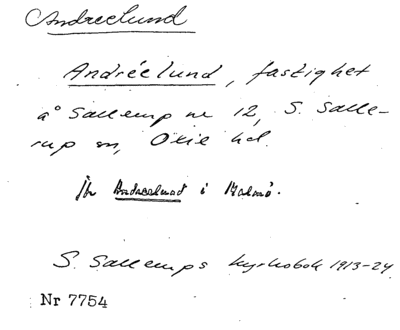 Andreelund
Andréelund, fastighet
å Sallerup nr 12, S. Salle-
rup sn, Oxie hd.
Jfr Andreelund i Malmö.
S. Sallerups kyrkobok 1913-24
Nr 7754